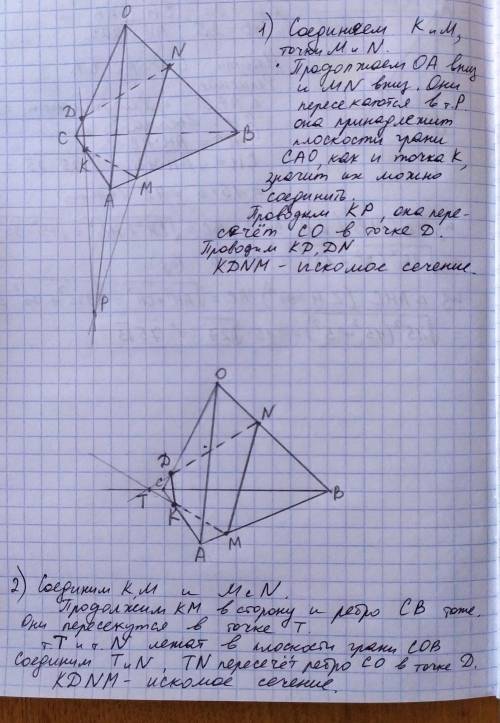 1) Соединяем К и М,
точки М и N.
Продолжаем ОА вниз
и MN вниз. Они
пересекаются в т.Р.
она принадлежит
плоскости грани
САО, как и точка К,
значит их можно
соединить.
Проводим КР, она пере-
сечёт СО в точке D.
Проводим KD, DN
KDNM – искомое сечение.
O
N
D
C
B
K
M
A
P
O
N
D
C
T
K
B
A
M
2) Соединим К,М и М с N.
Продолжим КМ в сторону и ребро СВ тоже.
Они пересекутся в точке Т.
т.Т и т.N лежат в плоскости грани СОВ
Соединим Т и N, TN пересечёт ребро СО в точке D.
KDNM – искомое сечение.